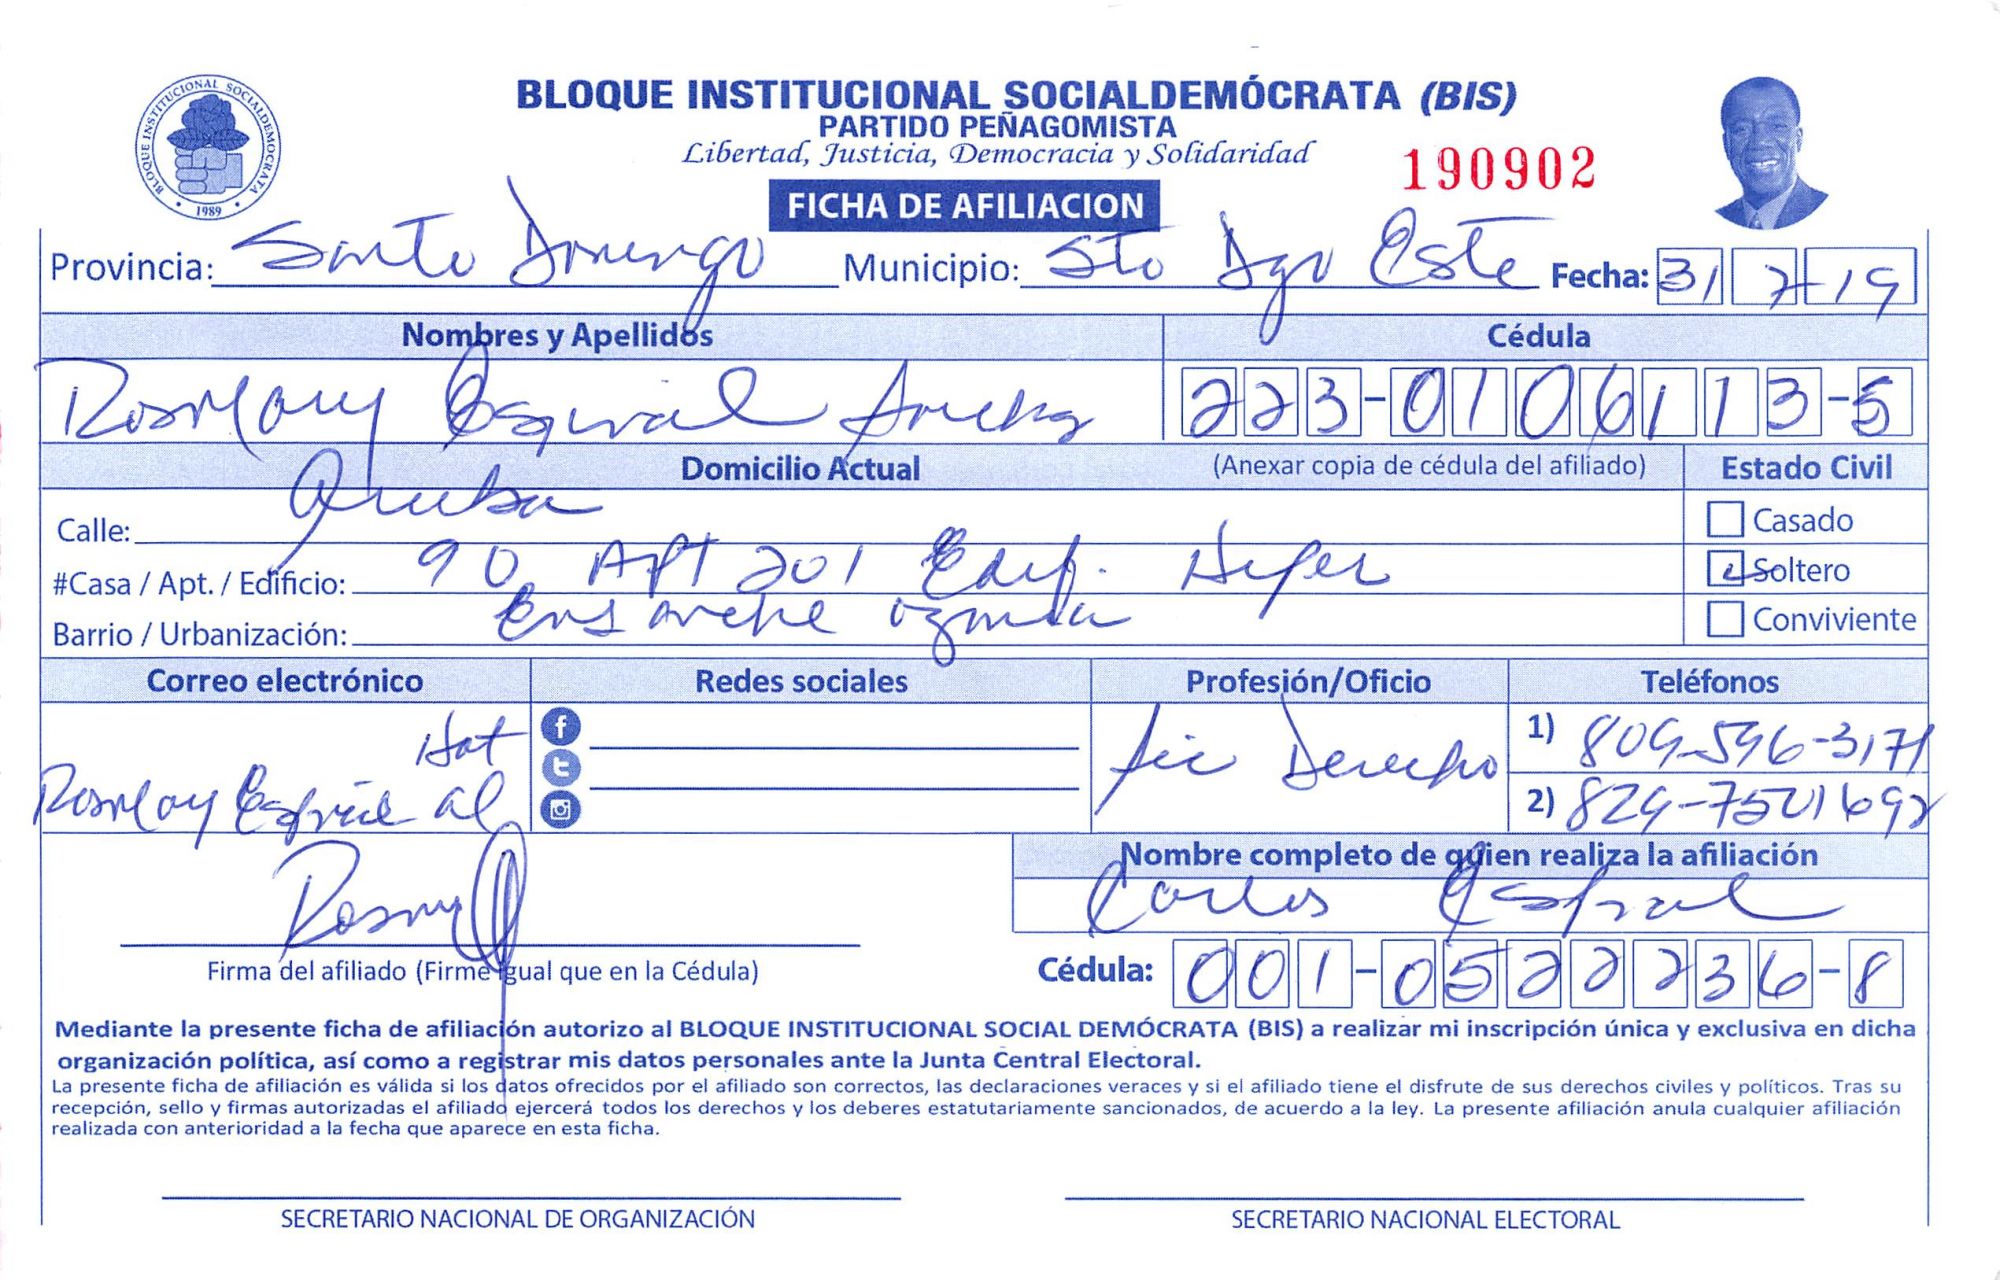 BLOQUE INSTITUCIONAL SOCIALDEMÓCRATA
1989
BLOQUE INSTITUCIONAL SOCIALDEMÓCRATA (BIS)
PARTIDO PEÑAGOMISTA
Libertad, Justicia, Democracia y Solidaridad
190902
FICHA DE AFILIACION
Provincia: Santo Domingo Municipio: Sto Dgo Este Fecha: 31 7 19
Nombres y Apellidos Cédula
Rosmary Espinal 223-0106113-5
Domicilio Actual (Anexar copia de cédula del afiliado) Estado Civil
Calle: Aruba
Casado
#Casa / Apt. / Edificio: 90 Apt 201 Edif.
Soltero
Barrio / Urbanización: Ensanche Ozama
Conviviente
Correo electrónico Redes sociales Profesión/Oficio Teléfonos
Hot
Rosmary al
Lic Derecho
1) 809-596-3171
2) 829-7501692
Nombre completo de quien realiza la afiliación
Carlos Espinal
Firma del afiliado (Firme igual que en la Cédula)
Cédula: 001-0522236-8
Mediante la presente ficha de afiliación autorizo al BLOQUE INSTITUCIONAL SOCIAL DEMÓCRATA (BIS) a realizar mi inscripción única y exclusiva en dicha
organización política, así como a registrar mis datos personales ante la Junta Central Electoral.
La presente ficha de afiliación es válida si los datos ofrecidos por el afiliado son correctos, las declaraciones veraces y si el afiliado tiene el disfrute de sus derechos civiles y políticos. Tras su
recepción, sello y firmas autorizadas el afiliado ejercerá todos los derechos y los deberes estatutariamente sancionados, de acuerdo a la ley. La presente afiliación anula cualquier afiliación
realizada con anterioridad a la fecha que aparece en esta ficha.
SECRETARIO NACIONAL DE ORGANIZACIÓN SECRETARIO NACIONAL ELECTORAL